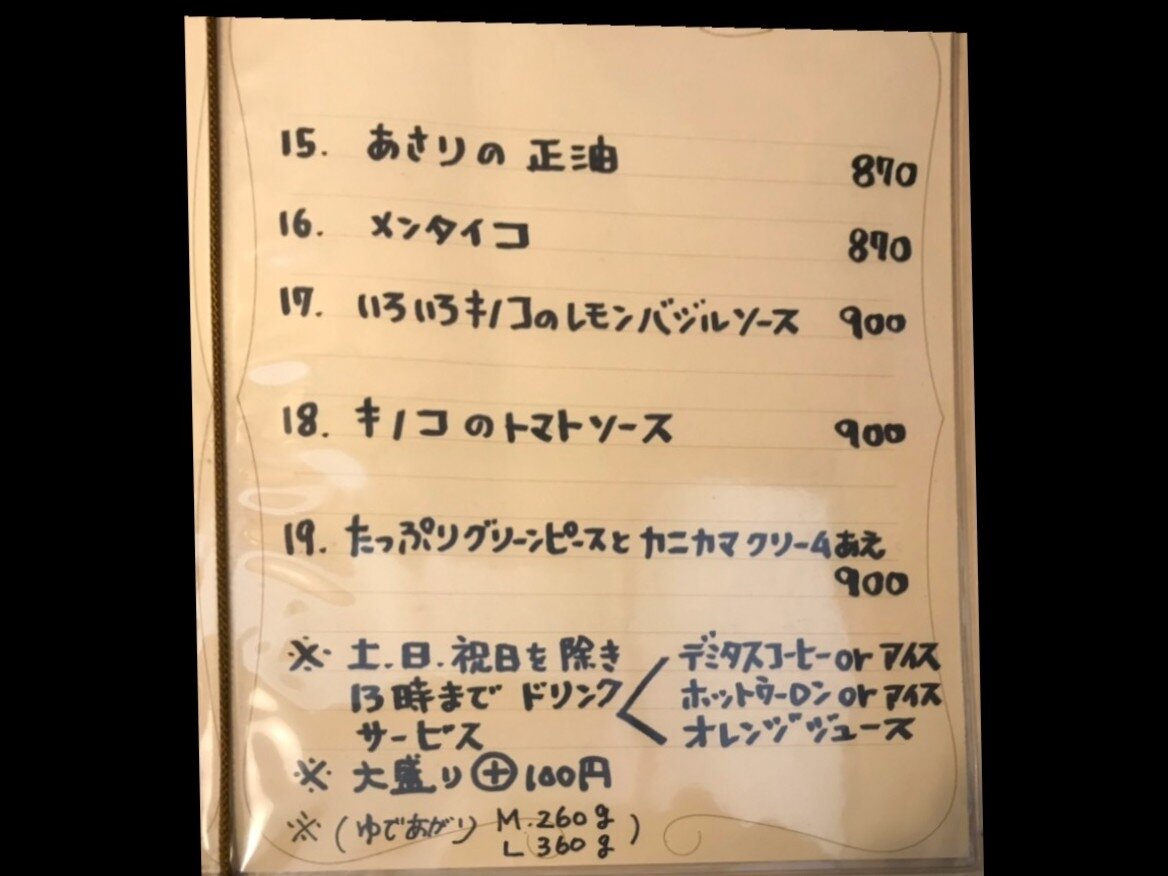 15. あさりの 正油 870
16. メンタイコ 870
17. いろいろキノコのレモンバジルソース 900
18. キノコのトマトソース 900
19. たっぷりグリーンピースとカニカマクリームあえ
900
※ 土.日.祝日を除き
13時まで ドリンク
サービス
デミタスコーヒー or アイス
ホットウーロン or アイス
オレンジジュース
※ 大盛り⊕100円
※ (ゆであがり M.260g
L 360g)